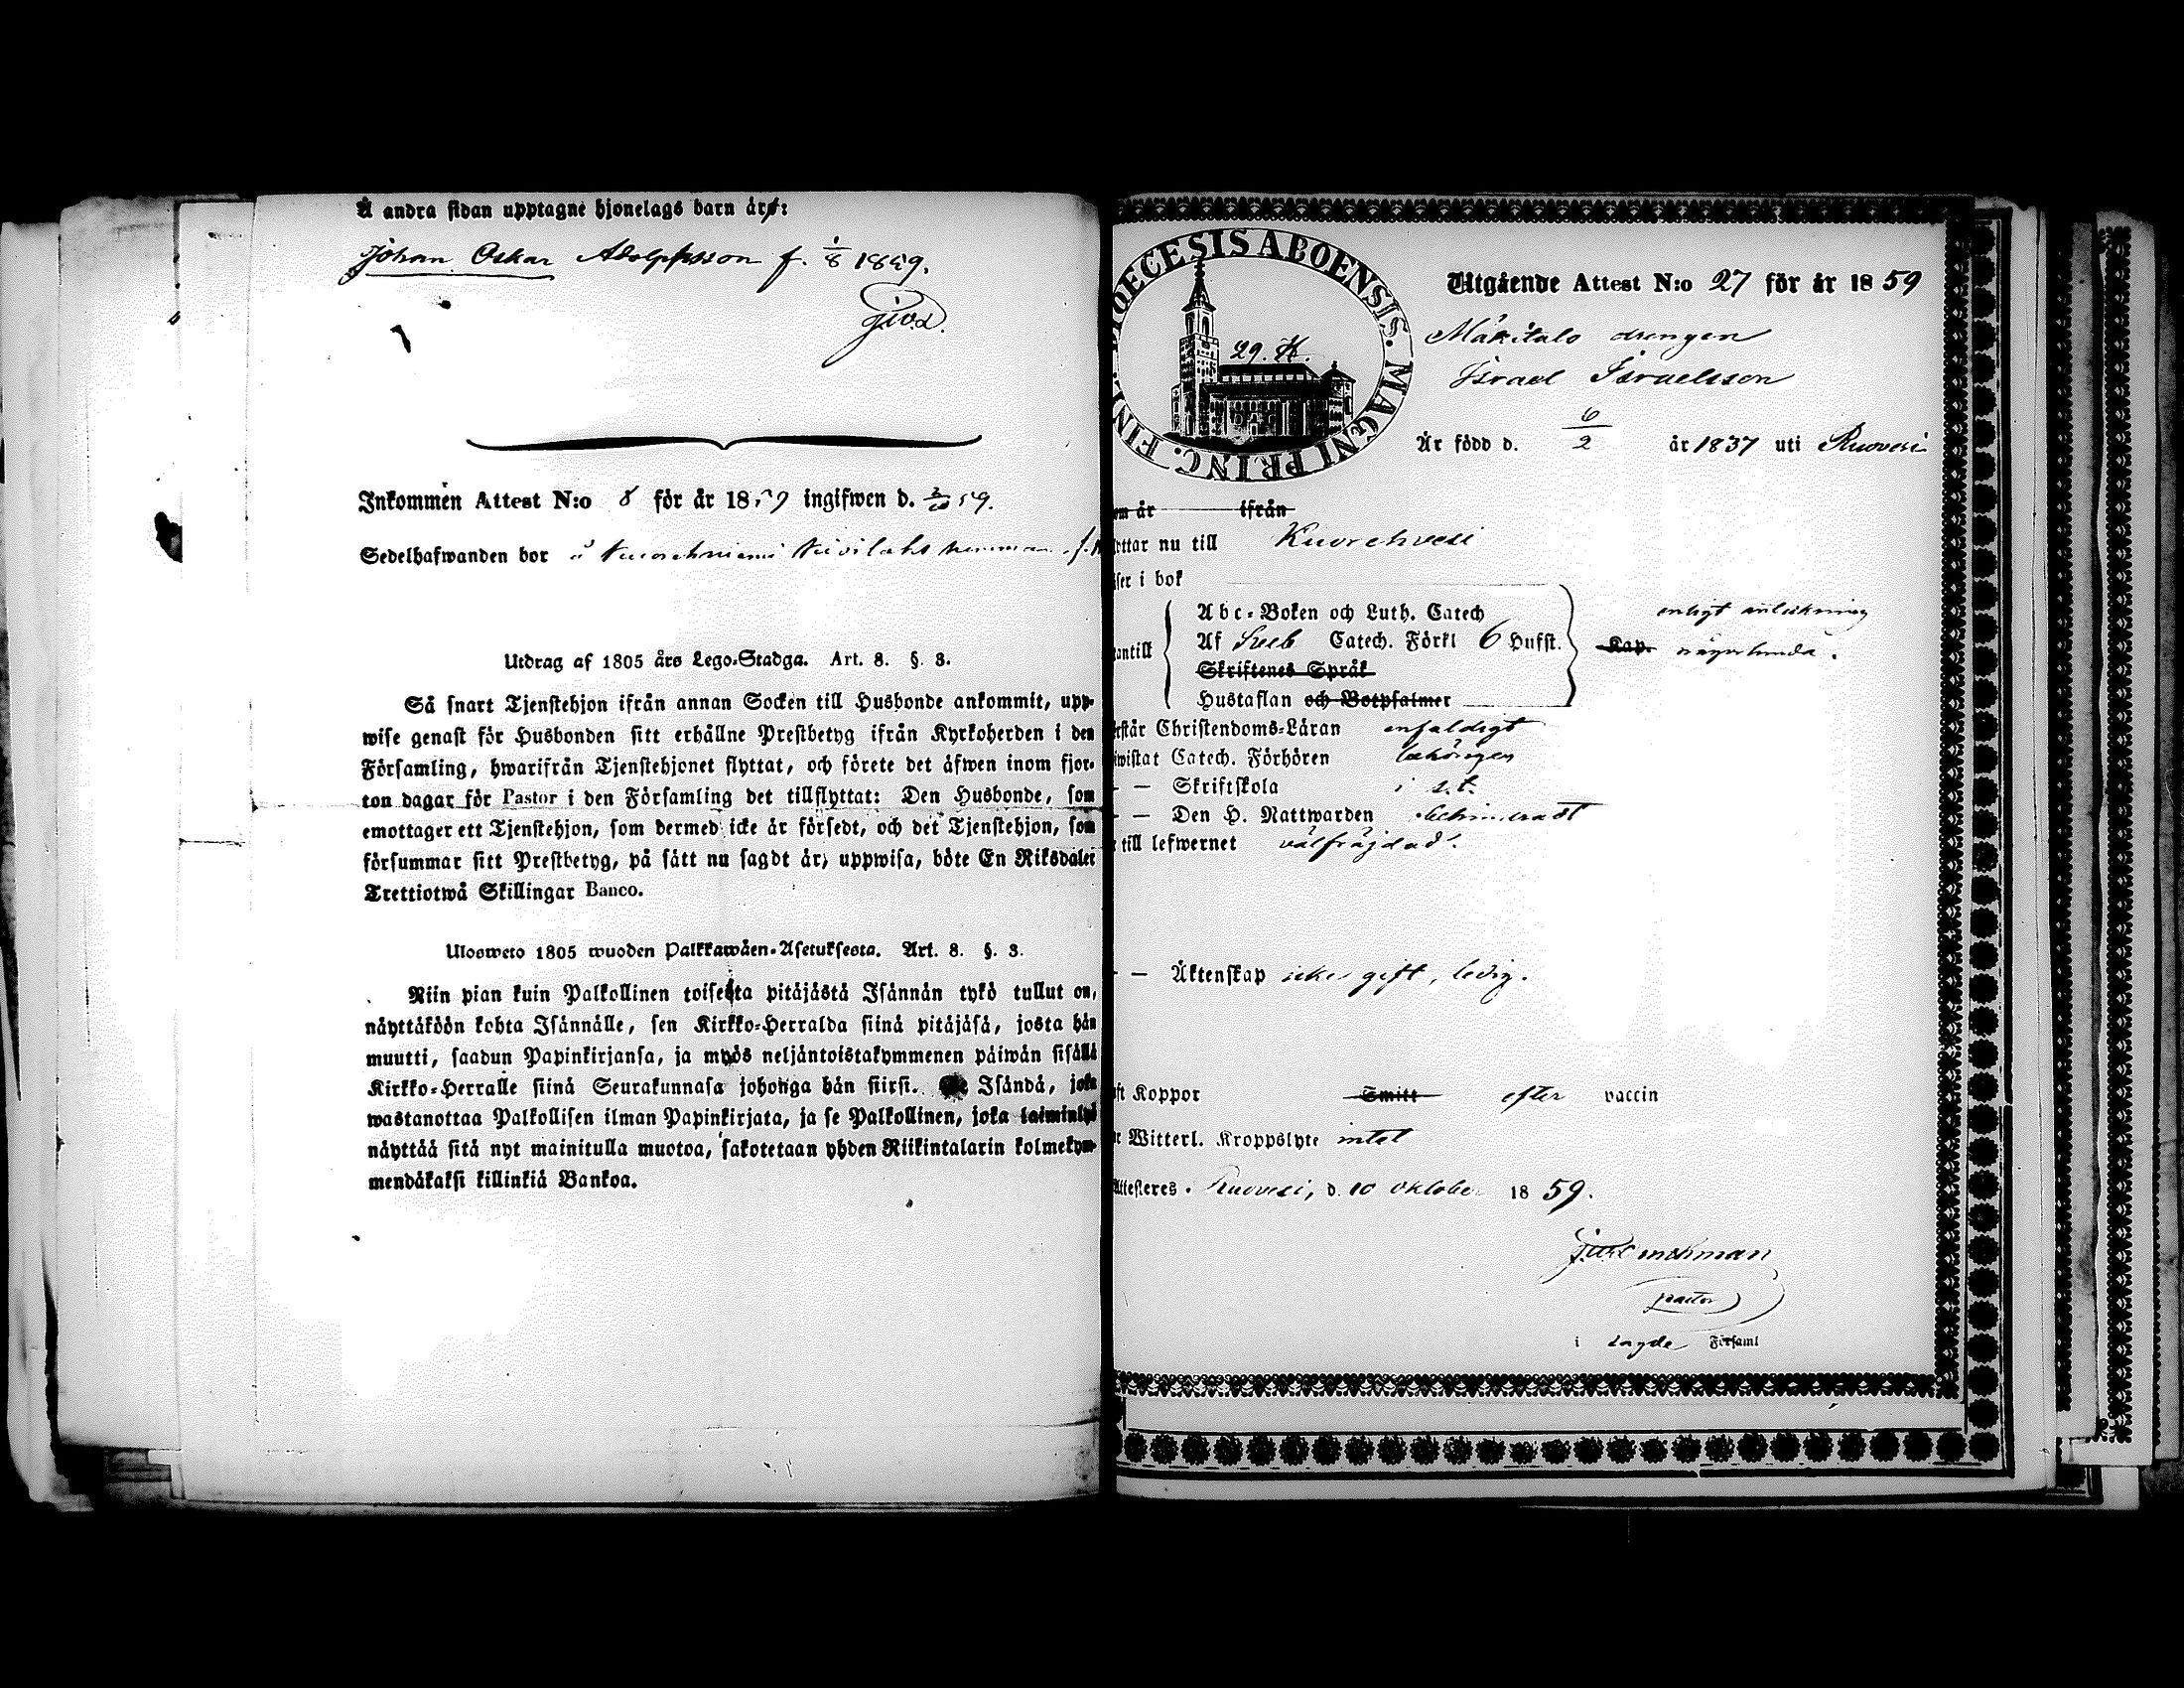 Å andra sidan upptagne hjonelags barn är:
Johan Oskar Adolphsson f. 1/8 1859.
Inkommen Attest N:o 8 för år 1859 ingifwen d. 59.
Sedelhafwanden bor å
Utdrag af 1805 års Lego-Stadga. Art. 8. §. 3.
Så snart Tjenstehjon ifrån annan Socken till Husbonde ankommit, upp-
wise genast för Husbonden sitt erhållne Prestbetyg ifrån Kyrkoherden i den
Församling, hwarifrån Tjenstehjonet flyttat, och förete det äfwen inom fjor-
ton dagar för Pastor i den Församling det tillflyttat: Den Husbonde, som
emottager ett Tjenstehjon, som dermed icke är försedt, och det Tjenstehjon, som
försummar sitt Prestbetyg, på sätt nu sagdt är, uppwisa, böte En Riksdaler
Trettiotwå Skillingar Banco.
Ulosweto 1805 wuoden Palkkawäen-Asetuksesta. Art. 8. §. 3.
Niin pian kuin Palkollinen toisesta pitäjästä Isännän tykö tullut on,
näyttäköön kohta Isännälle, sen Kirkko-Herralda siinä pitäjäsä, josta hän
muutti, saadun Papinkirjansa, ja myös neljäntoistakymmenen päiwän sisällä
Kirkko-Herralle siinä Seurakunnasa johonga hän siirsi. Isändä, joka
wastanottaa Palkollisen ilman Papinkirjata, ja se Palkollinen, joka laiminlyö
näyttää sitä nyt mainitulla muotoa, sakotetaan yhden Riikintalarin kolmekym-
mendäkaksi killinkiä Bankoa.
DIOECESIS ABOENSIS. MAGNI PRINC. FINL.
29. K.
Utgående Attest N:o 27 för år 1859
Mäkitalo drengen
Israel Israelsson
Är född d. 6/2 år 1837 uti Ruovesi
om är ifrån
ottar nu till Kuorehvesi
ser i bok
Abc-Boken och Luth. Catech
antill Af Sveb Catech. Förkl 6 Hufst. Kap. någorlunda.
enligt anteckning
Skriftenes Språk
Hustaflan och Botpsalmer
rstår Christendoms-Läran enfaldigt
iwistat Catech. Förhören behörigen
— — Skriftskola i s. t.
— — Den H. Nattwarden
till lefwernet välfräjdad.
— — Äktenskap icke gift, ledig.
ft Koppor Smitt efter vaccin
r Witterl. Kroppslyte intet
Attesteres. Ruovesi, d. 10 Oktober 1859.
pastor
i sagde Församl